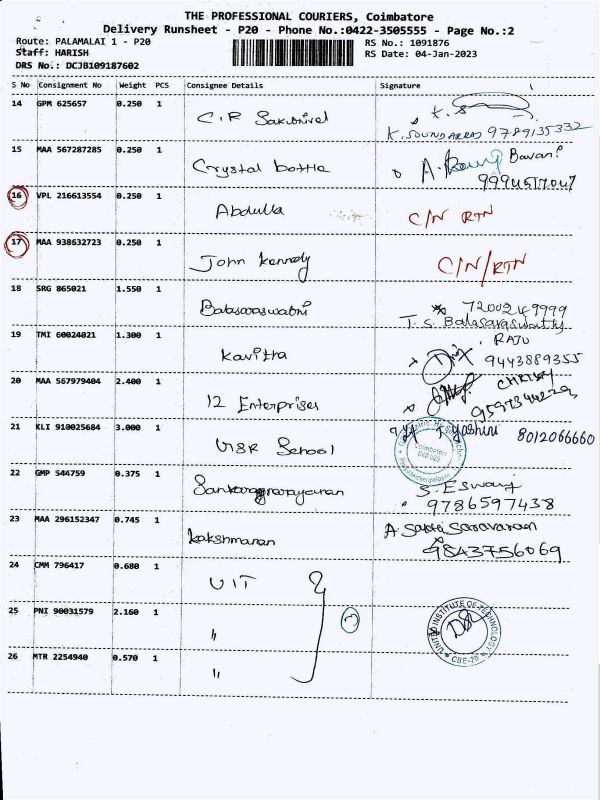 THE PROFESSIONAL COURIERS, Coimbatore
Delivery Runsheet - P20 - Phone No.:0422-3505555 - Page No.:2
Route: PALAMALAI 1 - P20
RS No.: 1091876
Staff: HARISH
RS Date: 04-Jan-2023
DRS No.: DCJB109187602
S No Consignment No Weight PCS Consignee Details Signature
14 GPM 625657 0.250 1 C.R K.S
K. SOUNDARRAJ 9789135332
15 MAA 567287285 0.250 1 Crystal bottle A. Bavani
16 VPL 216613554 0.250 1 Abdulla C/N RTN
17 MAA 938632723 0.250 1 John Kennedy C/N/RTN
18 SRG 865021 1.550 1 Balasaraswathi 7200249999
T. S. Balasaraswathy
19 TMI 60024021 1.300 1 Kavitha RAJU
9443889355
20 MAA 567979404 2.400 1 12 Enterprises CHRISTY
21 KLI 910025684 3.000 1 School Yoshini 8012066660
Coimbatore
22 GMP 544759 0.375 1 Sankaranarayanan S. Eswari
9786597438
23 MAA 296152347 0.745 1 Lakshmanan A. Sakthi Saravanan
9843756069
24 CMM 796417 0.680 1 UIT
25 PNI 90031579 2.160 1 "
3
UNITED INSTITUTE OF TECHNOLOGY
CBE-20
26 MTR 2254940 0.570 1 "